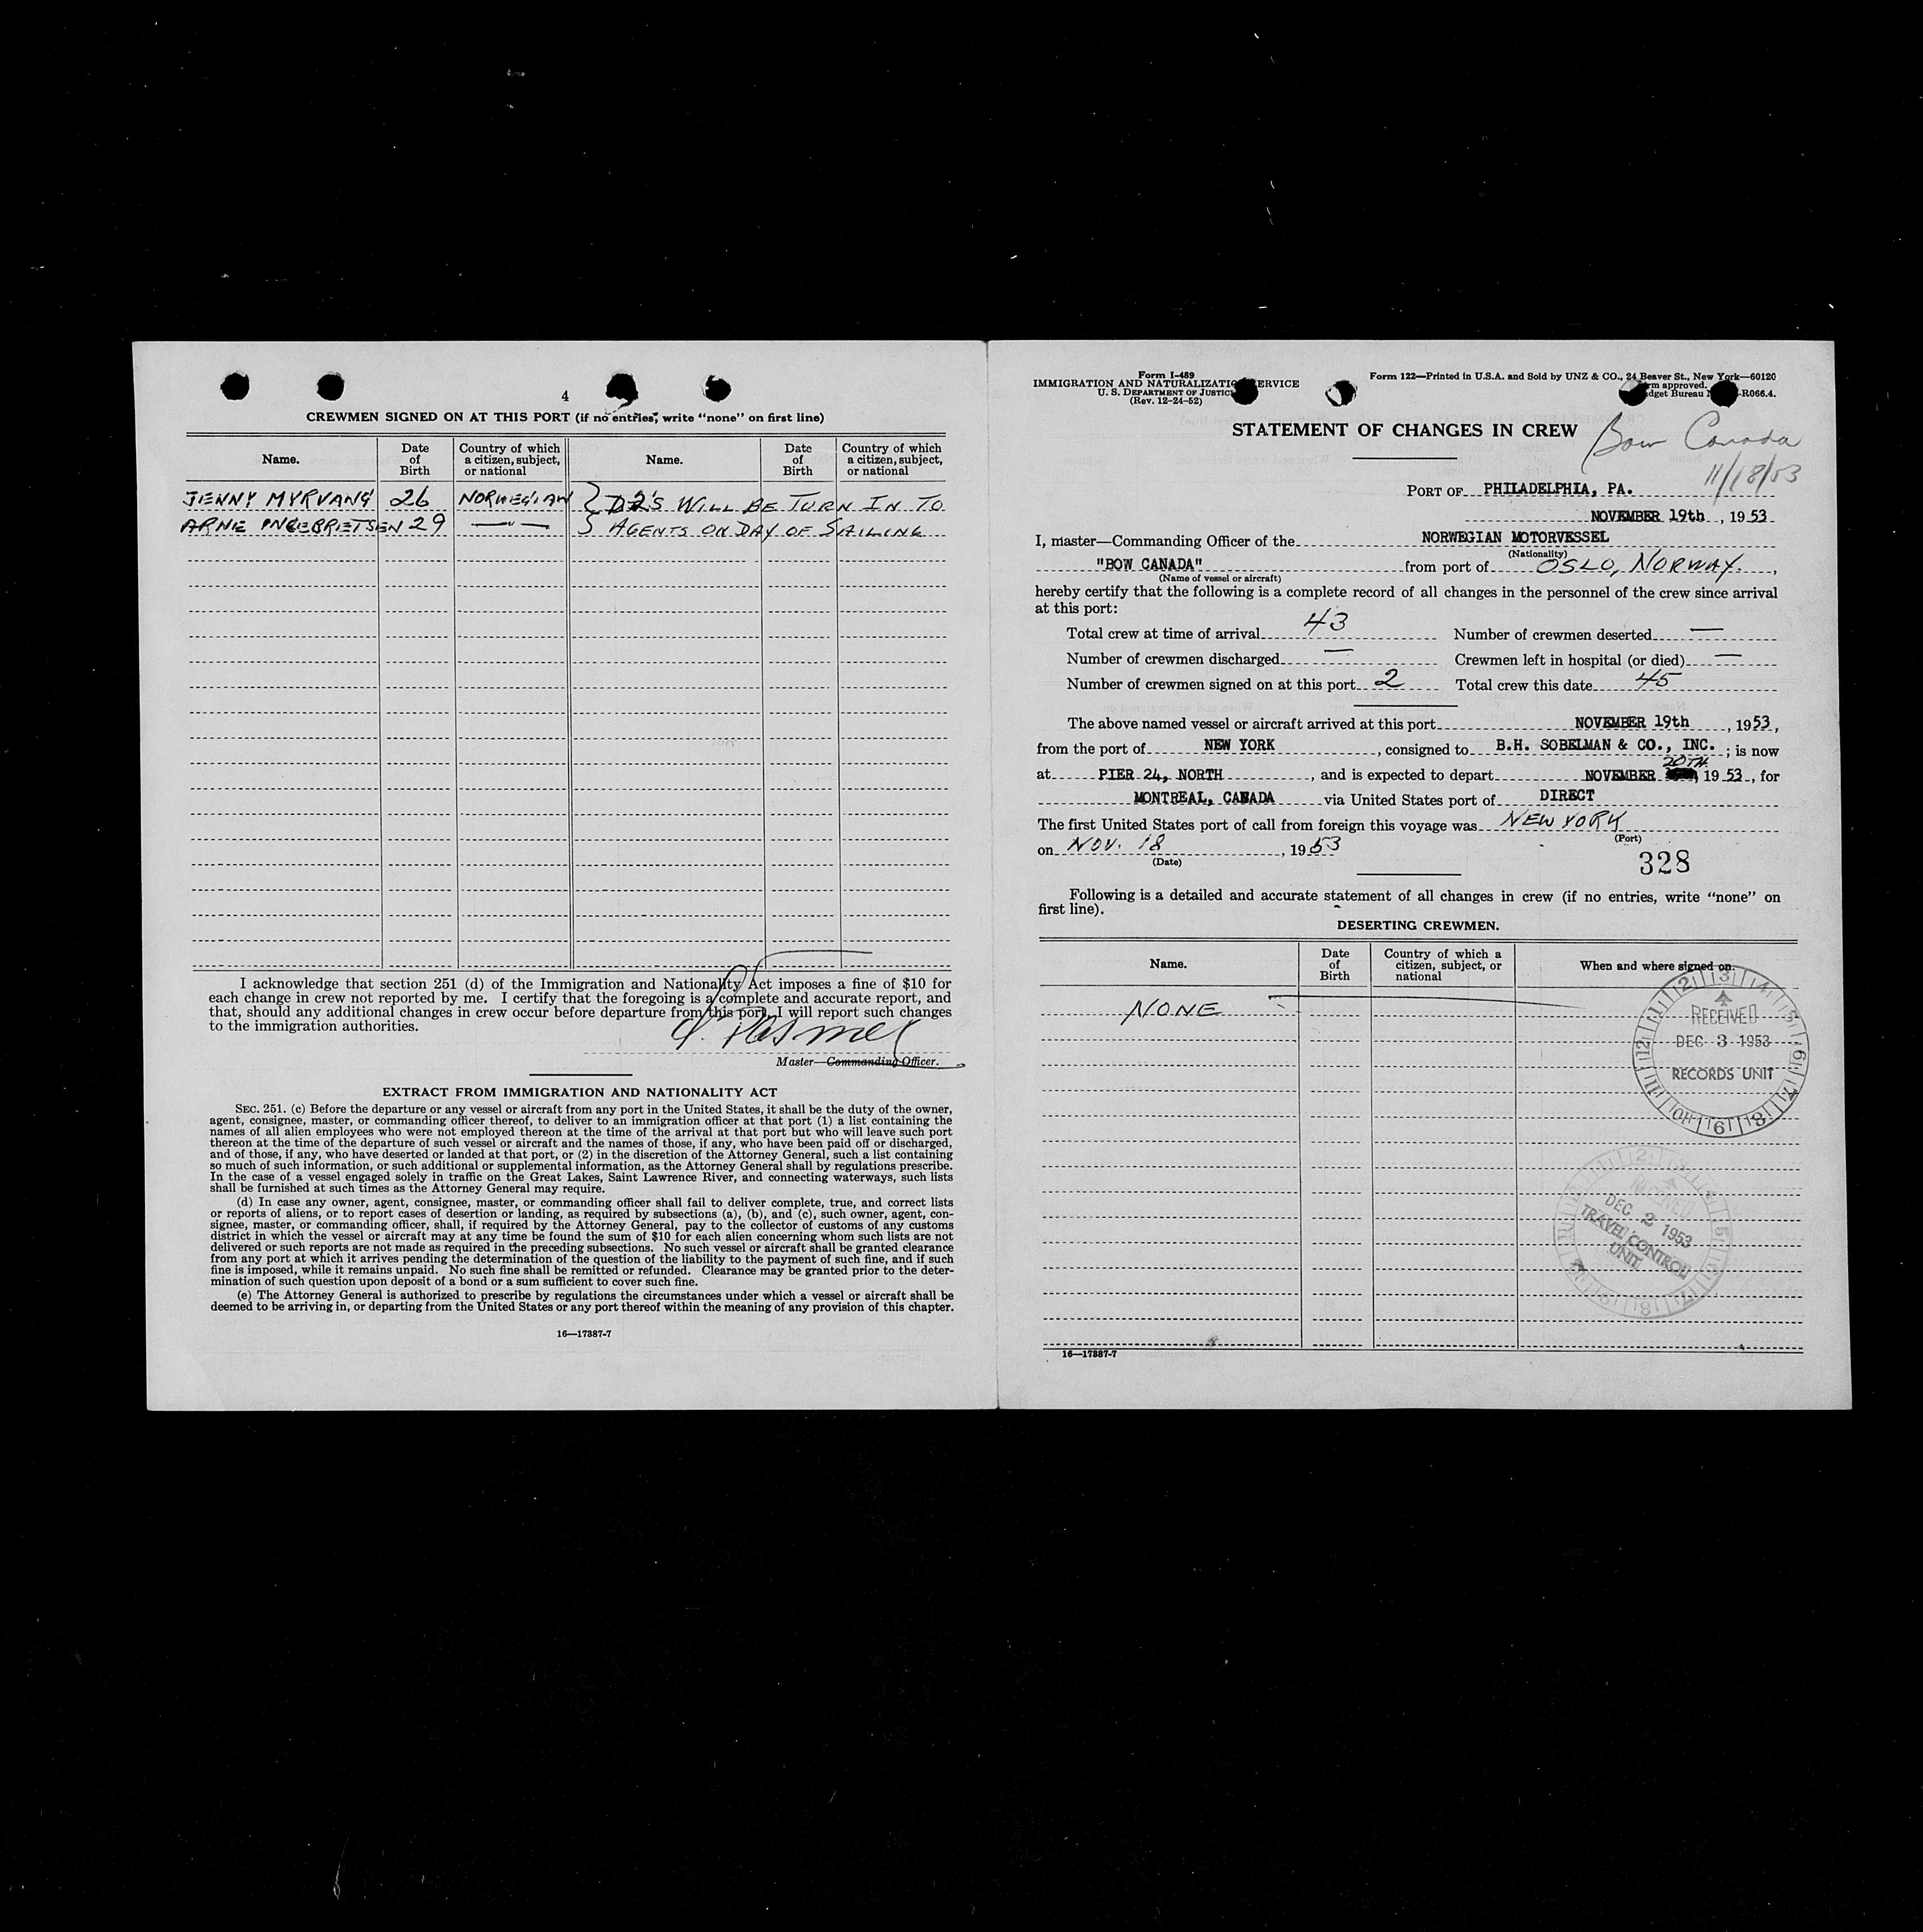 4
CREWMEN SIGNED ON AT THIS PORT (if no entries, write "none" on first line)
Name. Date of Birth Country of which a citizen, subject, or national Name. Date of Birth Country of which a citizen, subject, or national
JENNY MYRVANG 26 NORWEGIAN } D2'S WILL BE TURN IN TO
ARNE INGEBRIETSEN 29 —"— } AGENTS ON DAY OF SAILING
I acknowledge that section 251 (d) of the Immigration and Nationality Act imposes a fine of $10 for
each change in crew not reported by me. I certify that the foregoing is a complete and accurate report, and
that, should any additional changes in crew occur before departure from this port, I will report such changes
to the immigration authorities.
Master—Commanding Officer.
EXTRACT FROM IMMIGRATION AND NATIONALITY ACT
SEC. 251. (c) Before the departure or any vessel or aircraft from any port in the United States, it shall be the duty of the owner,
agent, consignee, master, or commanding officer thereof, to deliver to an immigration officer at that port (1) a list containing the
names of all alien employees who were not employed thereon at the time of the arrival at that port but who will leave such port
thereon at the time of the departure of such vessel or aircraft and the names of those, if any, who have been paid off or discharged,
and of those, if any, who have deserted or landed at that port, or (2) in the discretion of the Attorney General, such a list containing
so much of such information, or such additional or supplemental information, as the Attorney General shall by regulations prescribe.
In the case of a vessel engaged solely in traffic on the Great Lakes, Saint Lawrence River, and connecting waterways, such lists
shall be furnished at such times as the Attorney General may require.
(d) In case any owner, agent, consignee, master, or commanding officer shall fail to deliver complete, true, and correct lists
or reports of aliens, or to report cases of desertion or landing, as required by subsections (a), (b), and (c), such owner, agent, con-
signee, master, or commanding officer, shall, if required by the Attorney General, pay to the collector of customs of any customs
district in which the vessel or aircraft may at any time be found the sum of $10 for each alien concerning whom such lists are not
delivered or such reports are not made as required in the preceding subsections. No such vessel or aircraft shall be granted clearance
from any port at which it arrives pending the determination of the question of the liability to the payment of such fine, and if such
fine is imposed, while it remains unpaid. No such fine shall be remitted or refunded. Clearance may be granted prior to the deter-
mination of such question upon deposit of a bond or a sum sufficient to cover such fine.
(e) The Attorney General is authorized to prescribe by regulations the circumstances under which a vessel or aircraft shall be
deemed to be arriving in, or departing from the United States or any port thereof within the meaning of any provision of this chapter.
16—17387-7
Form I-489
IMMIGRATION AND NATURALIZATION SERVICE
U. S. DEPARTMENT OF JUSTICE
(Rev. 12-24-52)
Form 122—Printed in U.S.A. and Sold by UNZ & CO., 24 Beaver St., New York—60120
approved.
Bureau -R066.4.
STATEMENT OF CHANGES IN CREW
Bow Canada
11/18/53
PORT OF PHILADELPHIA, PA.
NOVEMBER 19th , 1953
I, master—Commanding Officer of the NORWEGIAN MOTORVESSEL
(Nationality)
"BOW CANADA" from port of OSLO, NORWAY. ,
(Name of vessel or aircraft)
hereby certify that the following is a complete record of all changes in the personnel of the crew since arrival
at this port:
Total crew at time of arrival 43 Number of crewmen deserted —
Number of crewmen discharged — Crewmen left in hospital (or died) —
Number of crewmen signed on at this port 2 Total crew this date 45
The above named vessel or aircraft arrived at this port NOVEMBER 19th , 1953,
from the port of NEW YORK , consigned to B.H. SOBELMAN & CO., INC. ; is now
at PIER 24, NORTH , and is expected to depart NOVEMBER 20TH, 1953, for
MONTREAL, CANADA via United States port of DIRECT
The first United States port of call from foreign this voyage was NEW YORK
(Port)
on NOV. 18 , 1953
(Date)
328
Following is a detailed and accurate statement of all changes in crew (if no entries, write "none" on
first line).
DESERTING CREWMEN.
Name. Date of Birth Country of which a citizen, subject, or national When and where signed on.
NONE
RECEIVED
DEC 3 1953
RECORDS UNIT
DEC 2 1953
TRAVEL CONTROL
UNIT
16—17387-7